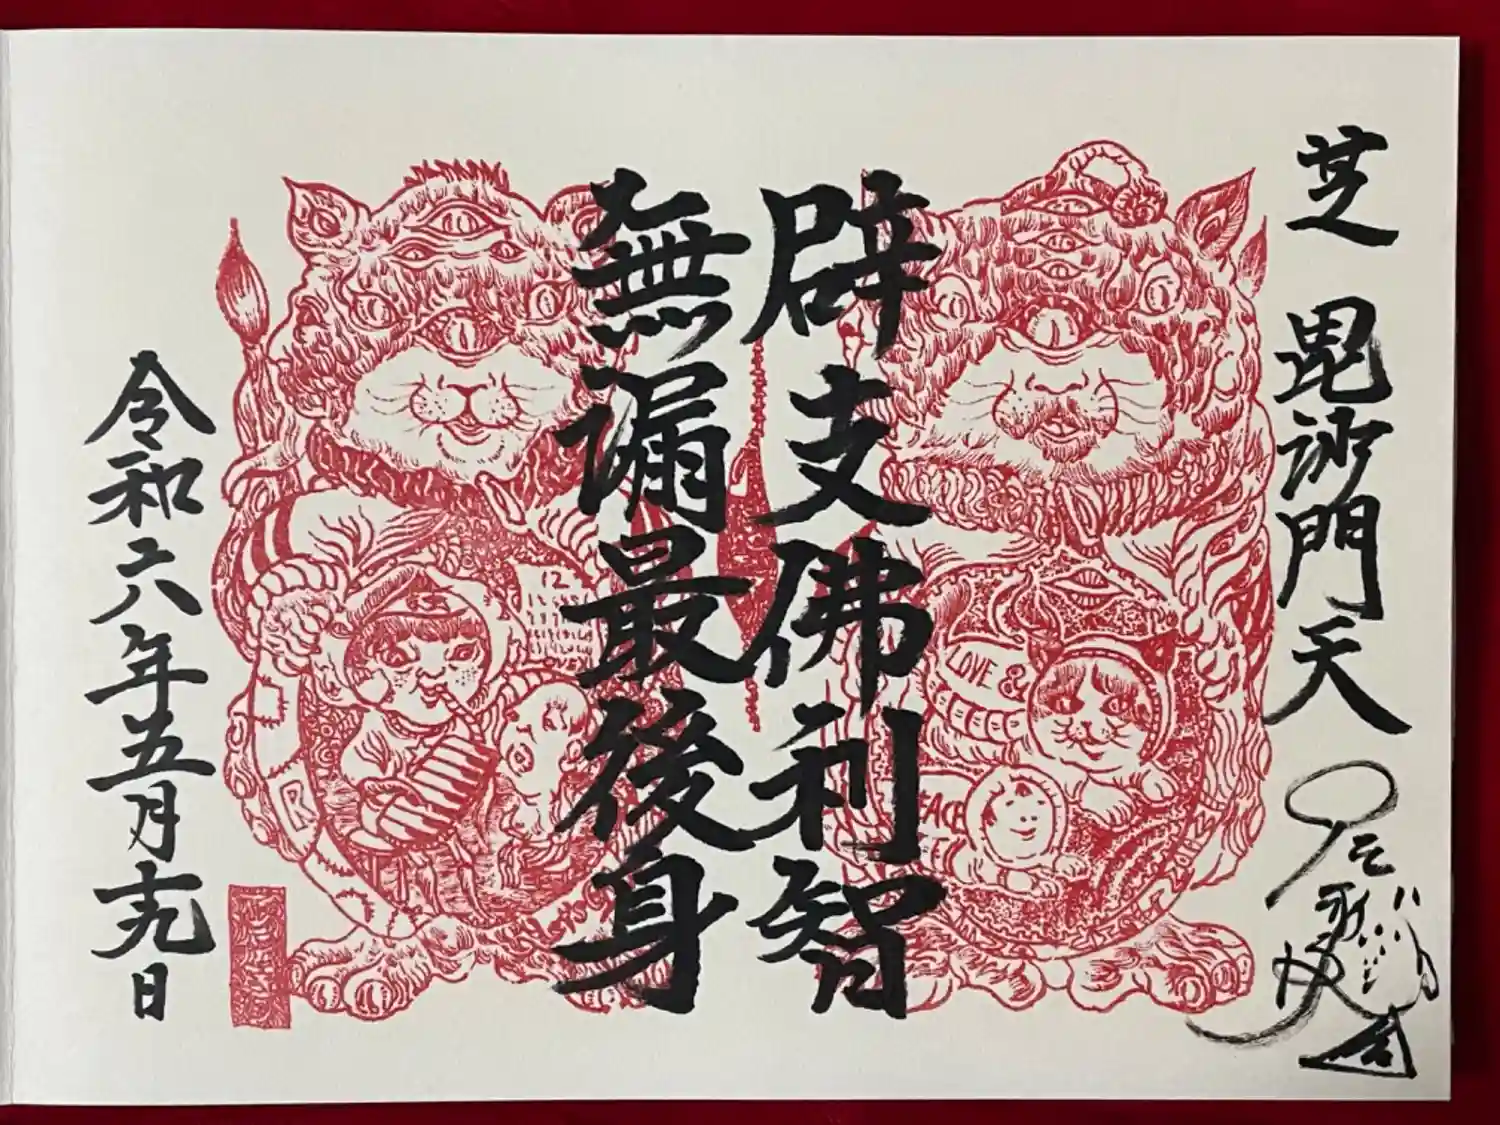 芝 毘沙門天
辟支佛利智
無漏最後身
令和六年五月十九日
12
LOVE &
PEACE